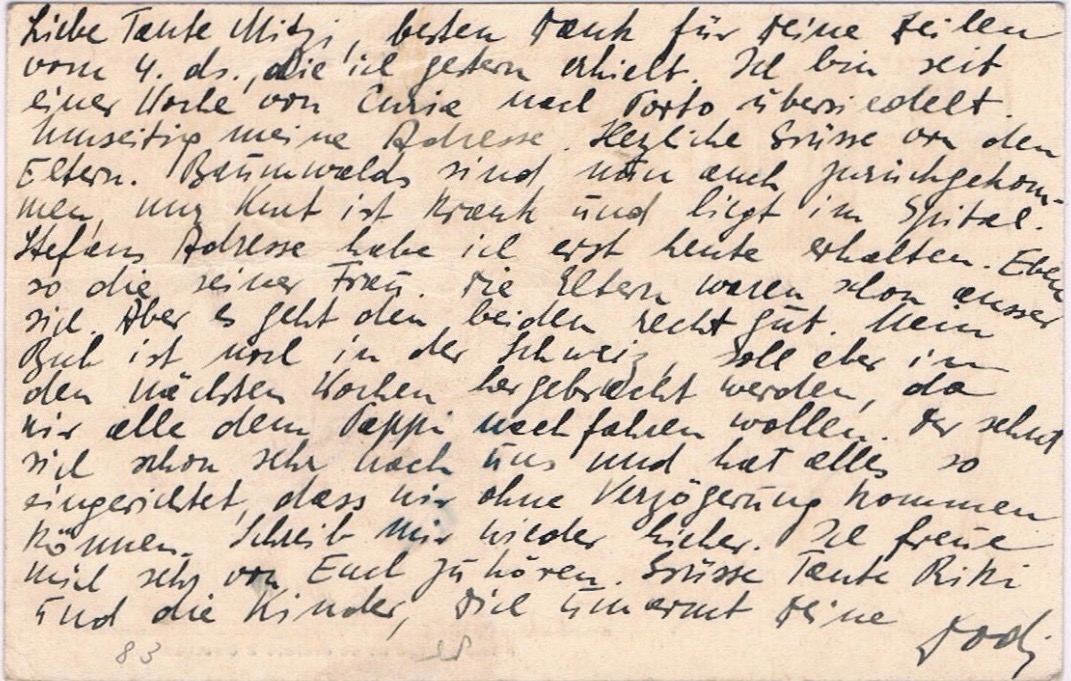 Liebe Tante Mitzi, besten Dank für Deine Zeilen
vom 4. ds., die ich gestern erhielt. Ich bin seit
einer Woche von Curia nach Porto übersiedelt.
Umseitig meine Adresse. Herzliche Grüsse von den
Eltern. Baumwalds sind nun auch zurückgekom-
men, nur Kurt ist krank und liegt im Spital.
Stefans Adresse habe ich erst heute erhalten. Eben
so die seiner Frau. Die Eltern waren schon ausser
sich. Aber es geht den beiden recht gut. Mein
Bub ist noch in der Schweiz, soll aber in
den nächsten Wochen hergebracht werden, da
wir alle dem Pappi nachfahren wollen. Der sehnt
sich schon sehr nach uns und hat alles so
eingerichtet, dass wir ohne Verzögerung kommen
können. Schreib mir wieder hieher. Ich freue
mich sehr von Euch zu hören. Grüsse Tante Riki
und die Kinder, Dich umarmt Deine
83